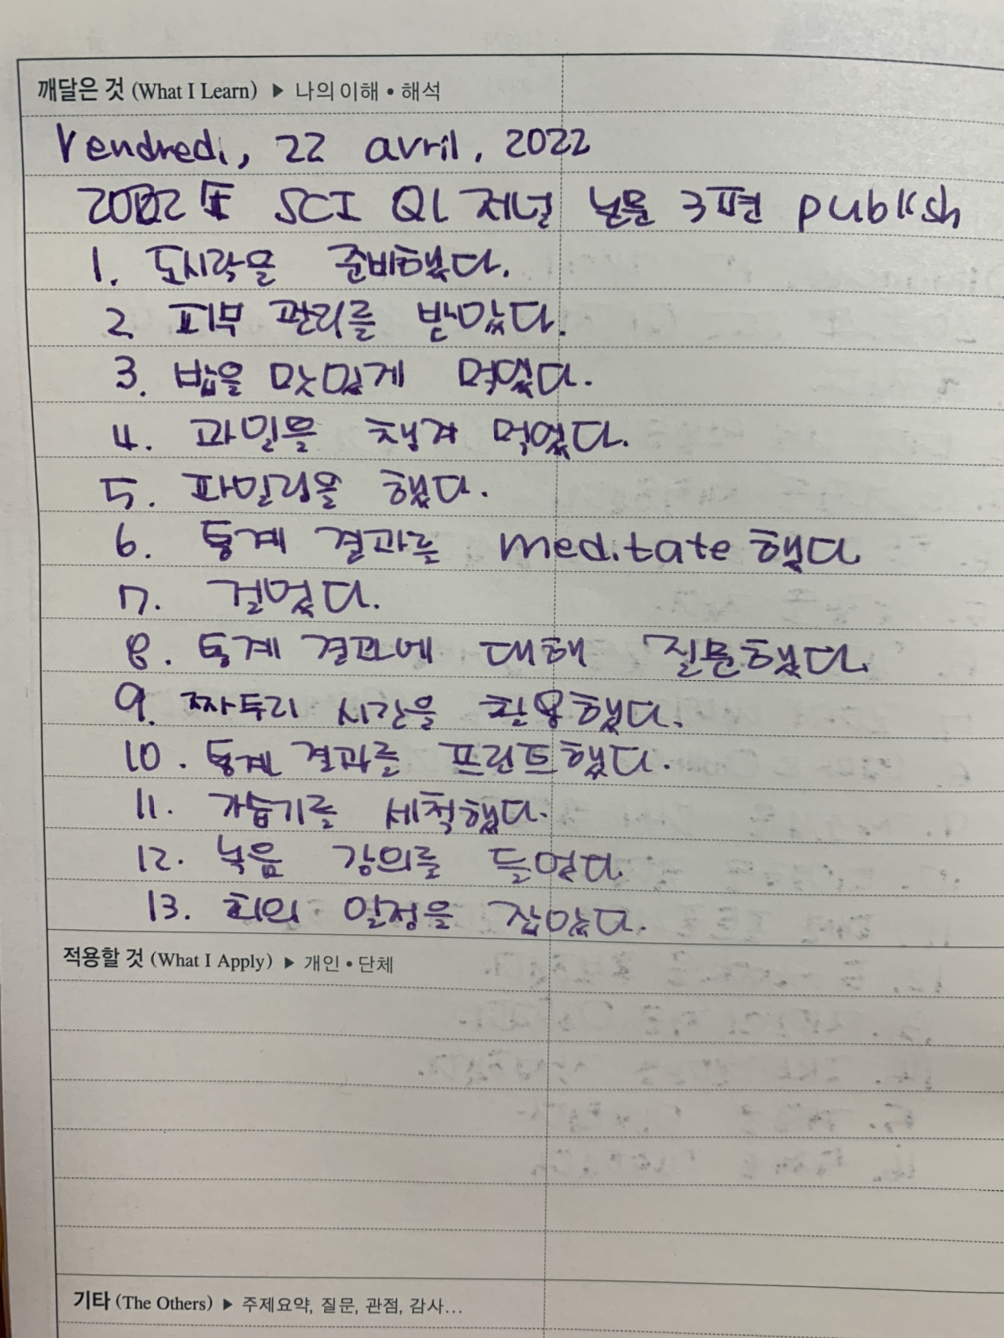 깨달은 것 (What I Learn) ▶ 나의 이해 • 해석
Vendredi, 22 avril, 2022
2022년 SCI Q1 저널 논문 3편 publish
1. 도시락을 준비했다.
2. 피부 관리를 받았다.
3. 밥을 맛있게 먹었다.
4. 과일을 챙겨 먹었다.
5. 파일링을 했다.
6. 통계 결과를 meditate 했다
7. 걸었다.
8. 통계 결과에 대해 질문했다.
9. 짜투리 시간을 활용했다.
10. 통계 결과를 프린트했다.
11. 가습기를 세척했다.
12. 녹음 강의를 들었다.
13. 회의 일정을 잡았다.
적용할 것 (What I Apply) ▶ 개인 • 단체
기타 (The Others) ▶ 주제요약, 질문, 관점, 감사...